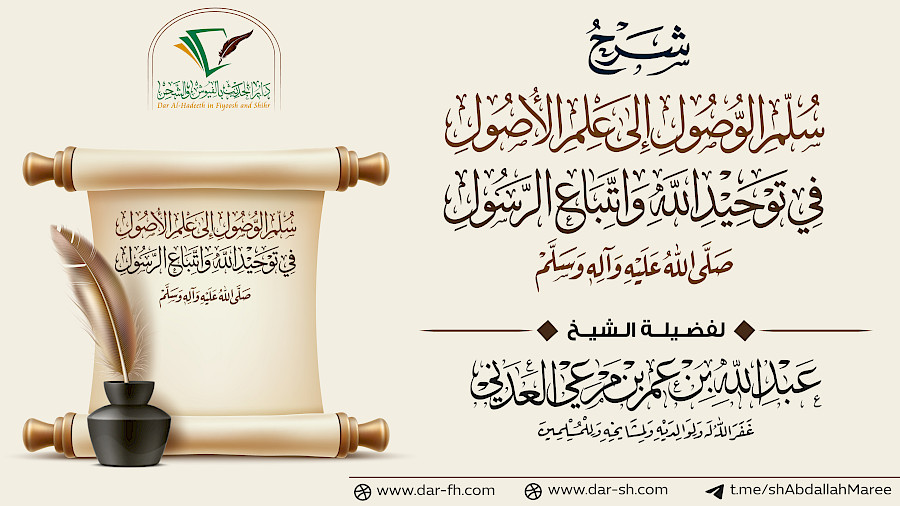 دار الحديث بالفيوش والشحر
Dar Al-Hadeeth in Fiyoosh and Shihr
شَرْحُ
سُلَّمِ الْوُصُولِ إِلَى عِلْمِ الْأُصُولِ
فِي تَوْحِيْدِ اللَّهِ وَاتِّبَاعِ الرَّسُولِ
صَلَّى اللهُ عَلَيْهِ وَآلِهِ وَسَلَّمْ
لفضيلة الشيخ
عَبْدِ اللَّهِ بْنِ عُمَر بْنِ مَرْعِي الْعَدَنِيِّ
غَفَرَ اللَّهُ لَهُ وَلِوَالِدَيْهِ وَلِمَشَايِخِهِ وَلِلْمُسْلِمِينَ
سُلَّمِ الْوُصُولِ إِلَى عِلْمِ الْأُصُولِ
فِي تَوْحِيْدِ اللَّهِ وَاتِّبَاعِ الرَّسُولِ
صَلَّى اللهُ عَلَيْهِ وَآلِهِ وَسَلَّمْ
www.dar-fh.com
www.dar-sh.com
t.me/shAbdallahMaree